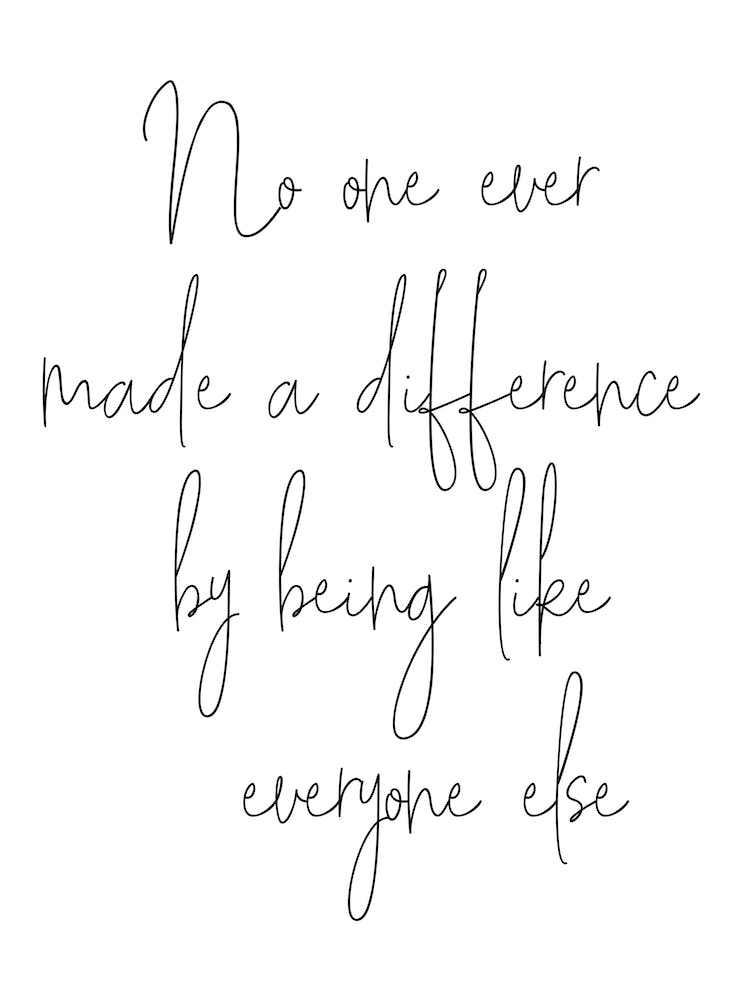 No one ever
made a difference
by being like
everyone else